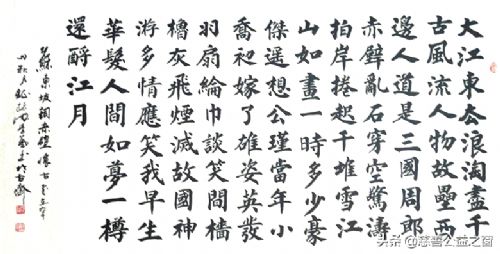 大江東去浪淘盡千
古風流人物故壘西
邊人道是三國周郎
赤壁亂石穿空驚濤
拍岸捲起千堆雪江
山如畫一時多少豪
傑遙想公瑾當年小
喬初嫁了雄姿英發
羽扇綸巾談笑間檣
櫓灰飛煙滅故國神
游多情應笑我早生
華髮人間如夢一樽
還酹江月
蘇東坡詞赤壁懷古
头条 @慈善公益之窗